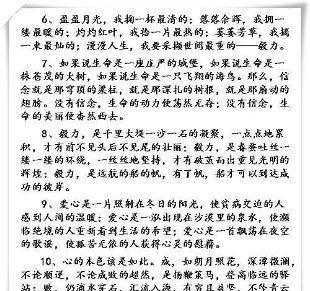 6、盈盈月光，我掬一杯最清的；落落余辉，我拥一
缕最暖的；灼灼红叶，我拾一片最热的；萋萋芳草，我摘
一束最灿的；漫漫人生，我要采撷世间最重的——毅力。
7、如果说生命是一座庄严的城堡，如果说生命是一
株苍茂的大树，如果说生命是一只飞翔的海鸟。那么，信
念就是那穹顶的梁柱，就是那深扎的树根，就是那扇动的
翅膀。没有信念，生命的动力便荡然无存；没有信念，生
命的美丽便杳然西去。
8、毅力，是千里大堤一沙一石的凝聚，一点点地累
积，才有前不见头后不见尾的壮丽；毅力，是春蚕吐丝一
缕一缕的环绕，一丝丝地坚持，才有破茧而出重见光明的
辉煌；毅力，是远航的船的帆，有了帆，船才可以到达成
功的彼岸。
9、爱心是一片照射在冬日的阳光，使贫病交迫的人
感到人间的温暖；爱心是一泓出现在沙漠里的泉水，使濒
临绝境的人重新看到生活的希望；爱心是一首飘荡在夜空
的歌谣，使孤苦无依的人获得心灵的慰藉。
10、心的本色该是如此。成，如朗月照花，深潭微澜，
不论顺逆，不论成败的超然，是扬鞭策马，登高临远的驿
站；败，仍滴水穿石，汇流入海，有穷且益坚，不坠青云